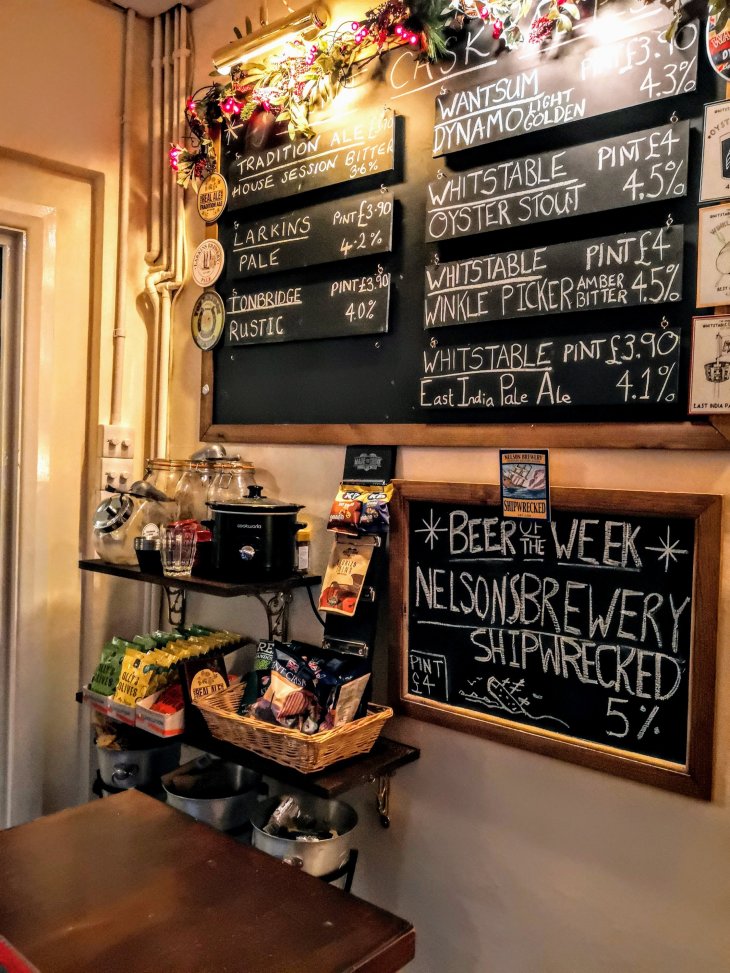 CASK
TRADITION ALE £3.90
HOUSE SESSION BITTER
3.6%
LARKINS PINT £3.90
PALE 4.2%
TONBRIDGE PINT £3.90
RUSTIC 4.0%
WANTSUM PINT £3.90
DYNAMO LIGHT GOLDEN 4.3%
WHITSTABLE PINT £4
OYSTER STOUT 4.5%
WHITSTABLE PINT £4
WINKLE PICKER AMBER BITTER 4.5%
WHITSTABLE PINT £3.90
East India Pale Ale 4.1%
REAL ALES
TRADITION ALE
EAST INDIA PA
NELSON BREWERY
SHIPWRECKED
BEER OF THE WEEK
NELSONS BREWERY
SHIPWRECKED
PINT £4
5%
cookworks
KP KP
OLLY'S
OLIVES
REAL ALES